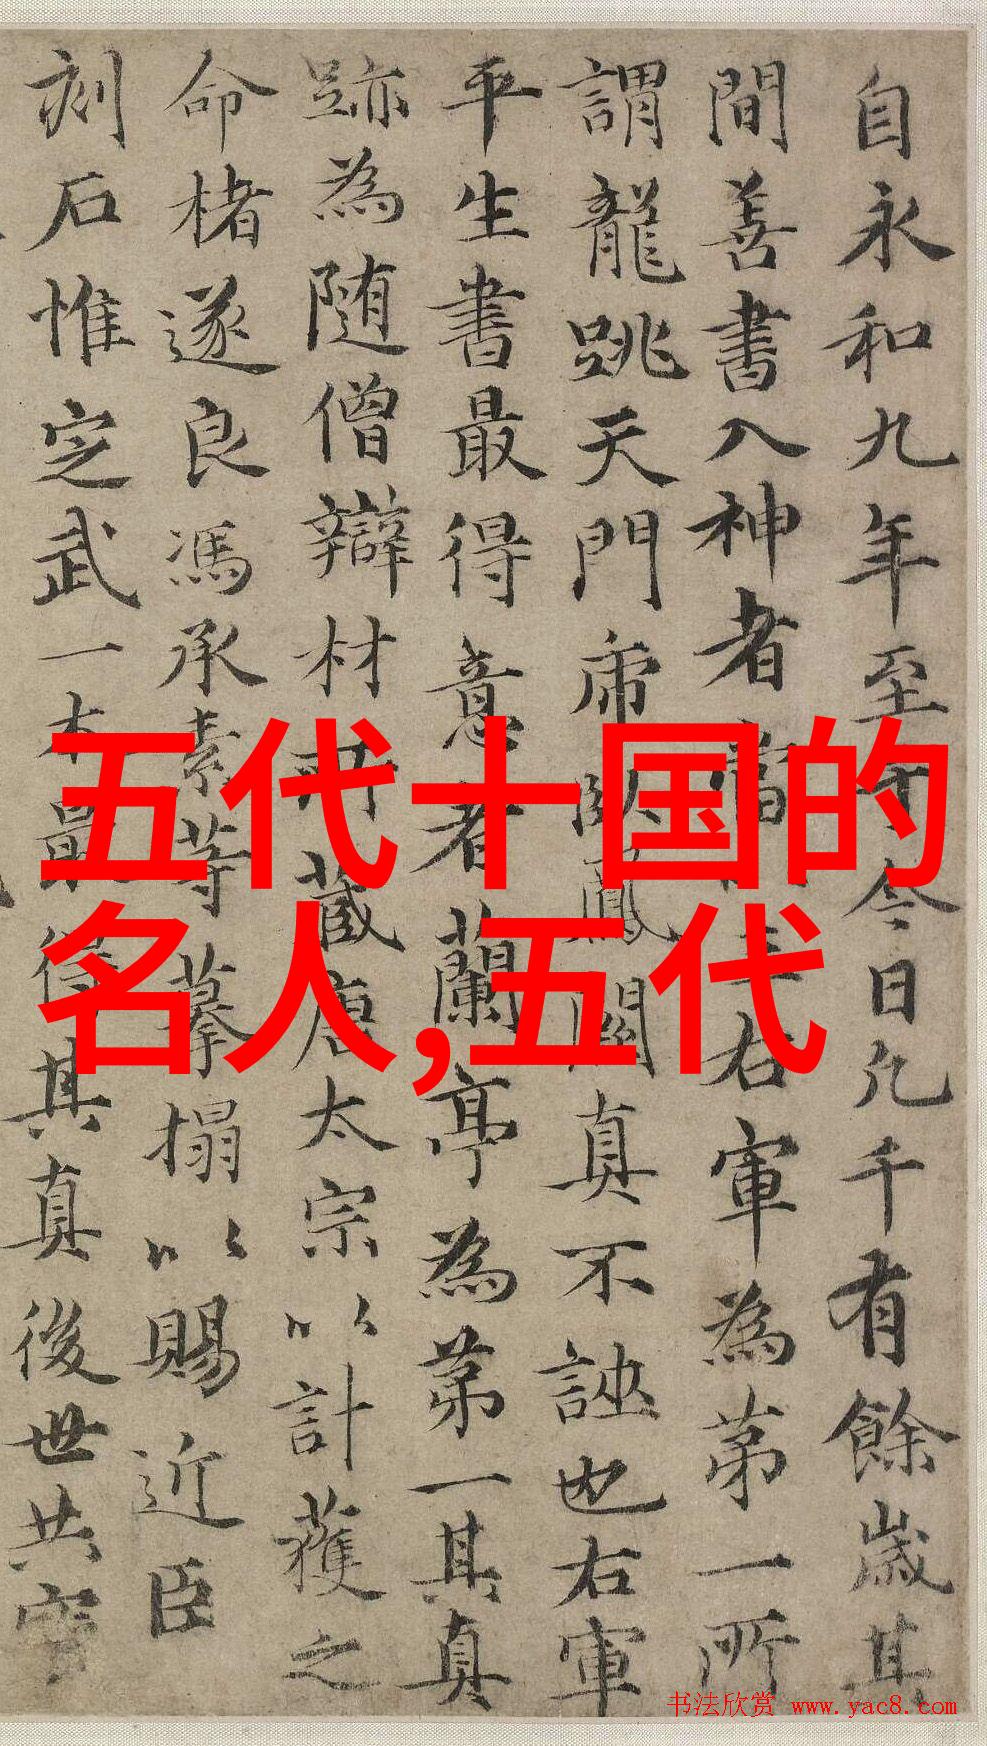 自永和九年至于今日凢千有餘歲其
間善書入神者當以王右軍為苐一所
謂龍跳天門席卧鳳閣真不誣也右軍
平生書最得意者蘭亭為苐一其真
跡為随僧辯材所蔵唐太宗以計獲之
命楮遂良馮承素等摹搨以賜近臣
刻石惟㝎武一本最得其真後世共寳
五代十国的
名人,五代
书法欣赏 www.yac8.com